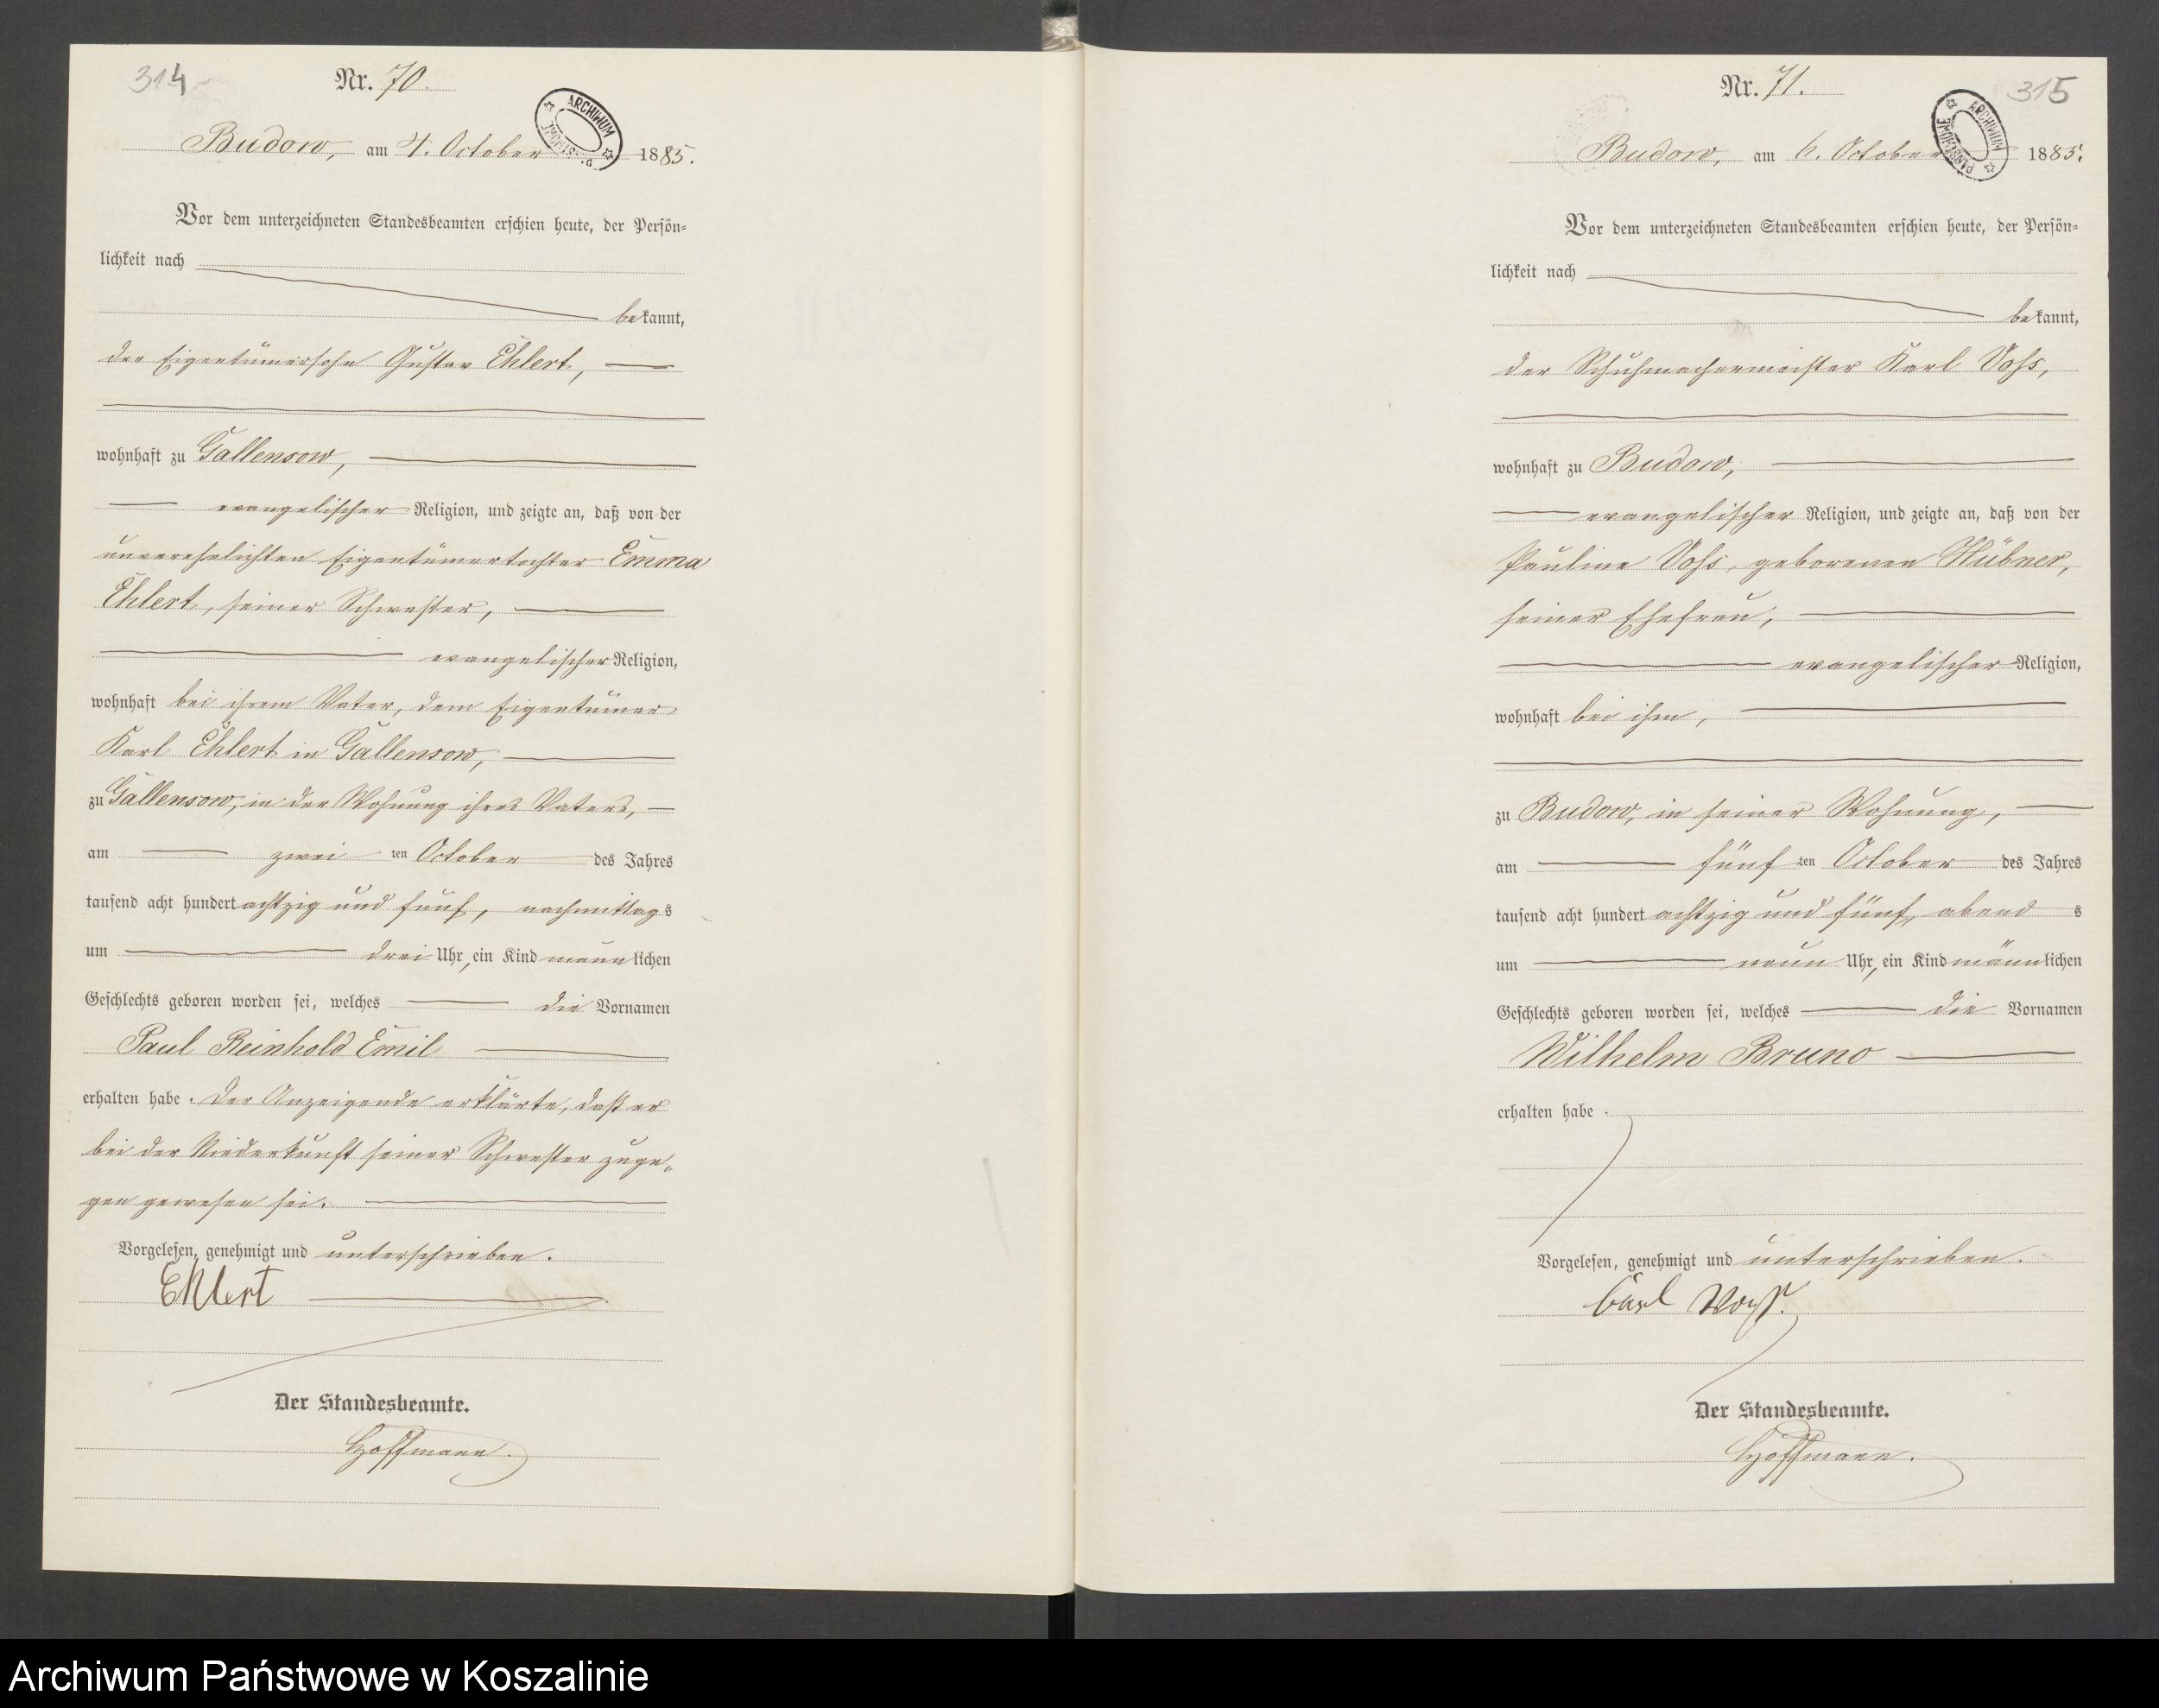 314
Nr. 70.
ARCHIWUM
Budow, am 4. October 1885.
Vor dem unterzeichneten Standesbeamten erschien heute, der Persön-
lichkeit nach
bekannt,
der Eigentümersohn Gustav Ehlert,
wohnhaft zu Gallensow,
evangelischer Religion, und zeigte an, daß von der
unverehelichten Eigentümertochter Emma
Ehlert, seiner Schwester,
evangelischer Religion,
wohnhaft bei ihrem Vater, dem Eigentümer
Karl Ehlert in Gallensow,
zu Gallensow, in der Wohnung ihres Vaters,
am zwei ten October des Jahres
tausend acht hundert achtzig und fünf, nachmittags
um drei Uhr, ein Kind männlichen
Geschlechts geboren worden sei, welches die Vornamen
Paul Reinhold Emil
erhalten habe. Der Anzeigende erklärte, daß er
bei der Niederkunft seiner Schwester zuge-
gen gewesen sei.
Vorgelesen, genehmigt und unterschrieben.
Ehlert
Der Standesbeamte.
Hoffmann.
Nr. 71.
315
ARCHIWUM PAŃSTWOWE
Budow, am 6. October 1885.
Vor dem unterzeichneten Standesbeamten erschien heute, der Persön-
lichkeit nach
bekannt,
der Schuhmachermeister Karl Voß,
wohnhaft zu Budow,
evangelischer Religion, und zeigte an, daß von der
Pauline Voß, geborenen Hübner,
seiner Ehefrau,
evangelischer Religion,
wohnhaft bei ihm,
zu Budow, in seiner Wohnung,
am fünf ten October des Jahres
tausend acht hundert achtzig und fünf, abends
um neun Uhr, ein Kind männlichen
Geschlechts geboren worden sei, welches die Vornamen
Wilhelm Bruno
erhalten habe.
Vorgelesen, genehmigt und unterschrieben.
Carl Voß.
Der Standesbeamte.
Hoffmann.
Archiwum Państwowe w Koszalinie